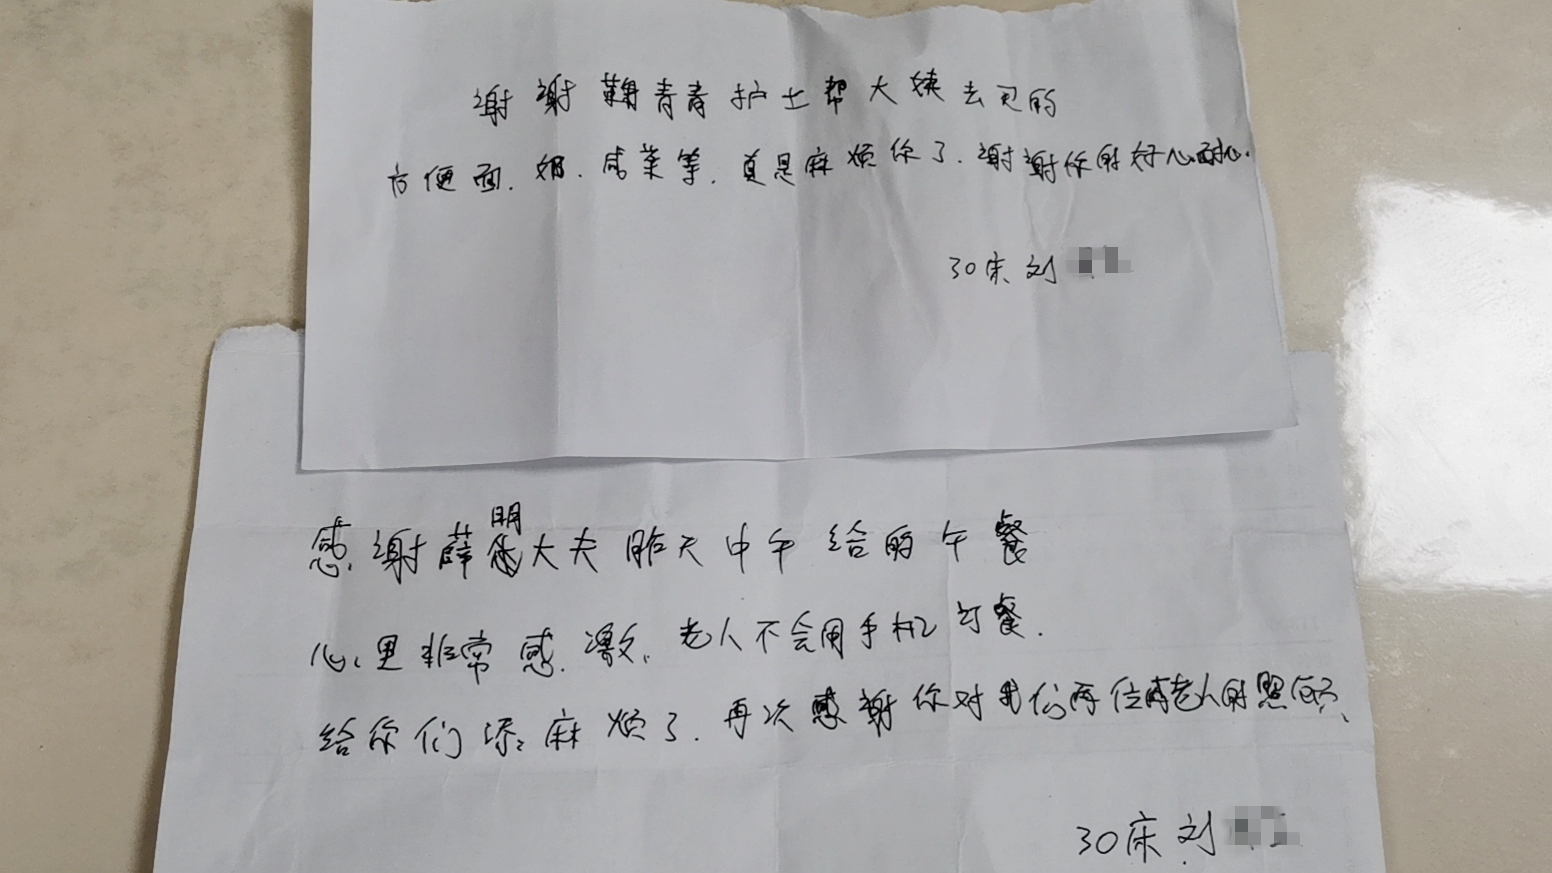 谢谢鞠青青护士帮大姨去买的
方便面.奶.咸菜等.真是麻烦你了.谢谢你的好心耐心.
30床刘
感谢薛明大夫昨天中午给的午餐
心里非常感激.老人不会用手机订餐.
给你们添麻烦了.再次感谢你对我们两位老人的照顾、
30床刘